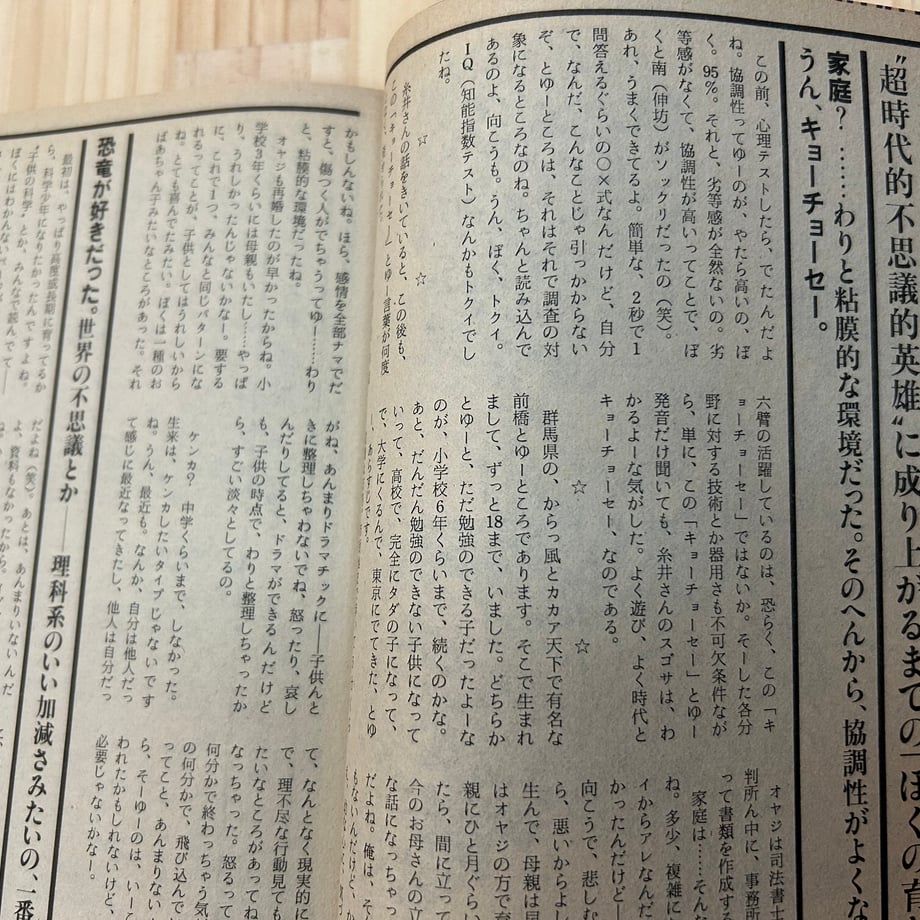 “超時代的不思議的英雄”に成り上がるまでの「ぼくの育
家庭? ……わりと粘膜的な環境だった。そのへんから、協調性がよくな
うん、キョーチョーセー。
この前、心理テストしたら、でたんだよ
ね。協調性ってゆーのが、やたら高いの、ぼ
く。95%。それと、劣等感が全然ないの。劣
等感がなくて、協調性が高いってことで、ぼ
くと南(伸坊)がソックリだったの(笑)。
あれ、うまくできてるよ。簡単な、2秒で1
問答えるぐらいの○×式なんだけど、自分
で、なんだ、こんなことじゃ引っかからない
ぞ、とゆーところは、それはそれで調査の対
象になるところなのね。ちゃんと読み込んで
あるのよ、向こうも。うん、ぼく、トクイ。
IQ(知能指数テスト)なんかもトクイでし
たね。
☆ ☆
糸井さんの話をきいていると、この後も、
この「キョーチョーセー」とゆー言葉が何度
六臂の活躍しているのは、恐らく、この「キ
ョーチョーセー」ではないか。そーした各分
野に対する技術とか器用さも不可欠条件なが
ら、単に、この「キョーチョーセー」とゆー
発音だけ聞いても、糸井さんのスゴサは、わ
かるよーな気がした。よく遊び、よく時代と
キョーチョーセー、なのである。
☆ ☆
群馬県の、からっ風とカカア天下で有名な
前橋とゆーところであります。そこで生まれ
まして、ずっと18まで、いました。どちらか
とゆーと、ただ勉強のできる子だったよーな
のが、小学校6年くらいまで、続くのかな。
あと、だんだん勉強のできない子供になって
いって、高校で、完全にタダの子になって、
で、大学にくるんで、東京にでてきた、とゆ
ー、あらすじです。
オヤジは司法書士
判所ん中に、事務所
って書類を作成する
家庭は……そんな
ね。多少、複雑に
イからアレなんだ
かったんだけど―
向こうで、悲しむ
ら、悪いからよし
生んで、母親は
はオヤジの方で育
親にひと月ぐらい
たら、間に立って
今のお母さんの立
な話になっちゃっ
だよね。俺は、そ
もないんだけど、か
かもしんないね。ほら、感情を全部ナマでだ
すと、傷つくんがでちゃうってゆー……わり
と、粘膜的な環境だったね。
オヤジも再婚したのが早かったからね。小
学校3年くらいには母親もいたし……やっぱ
り、うれしかったんじゃないかなー。要する
に、これで1つ、みんなと同じパターンにな
れるってことが、子供としてはうれしいから
ね。とても喜んでたみたい。ぼくは一種のお
ばあちゃん子みたいなところがあった。それ
がね、あんまりドラマチックに――子供んと
きに整理しちゃわないでね、怒ったり、哀し
んだりしてると、ドラマができるんだけど
も、子供の時点で、わりと整理しちゃったか
ら、すごい淡々としてるの。
ケンカ? 中学くらいまで、しなかった。
生来は、ケンカしたいタイプじゃないです
ね。うん、最近も。なんか、自分は他人だっ
て感じに最近なってきたし、他人は自分だっ
て、なんとなく現実的に
で、理不尽な行動見ても
たいなところがあってね
なっちゃった。怒るって
何分かで終わっちゃう気
の何分かで、飛び込んで
ってこと、あんまりない
ら、そーゆーのは、いーこ
われたかもしれないけど、
必要じゃないかな。
恐竜が好きだった。世界の不思議とか――理科系のいい加減さみたいの、一番
最初は、やっぱり高度成長期に育ってるか
ら、科学少年になりたかったんですよね。
“子供の科学”とか、みんなで読んでて――
だよね(笑)。あとは、あんまりいないんだ
よ、資料もなかったから。